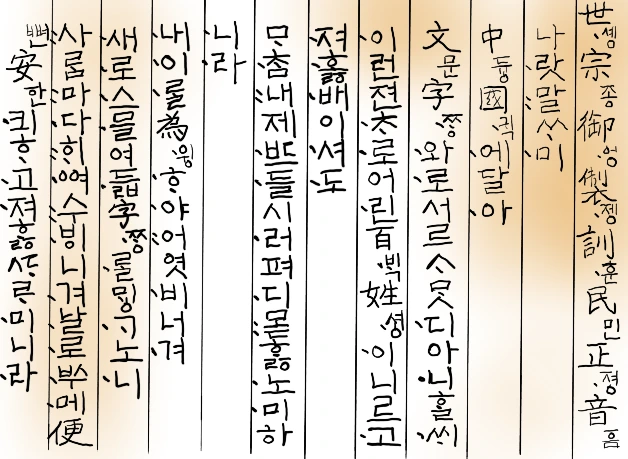 世솅宗종御엉製젱訓훈民민正졍音ᅙᅳᆷ
나랏말ᄊᆞ미
中듕國귁에달아
文문字ᄍᆞᆼ와로서르ᄉᆞᄆᆞᆺ디아니ᄒᆞᆯᄊᆡ
이런젼ᄎᆞ로어린百ᄇᆡᆨ姓셩이니르고
져호ᇙ배이셔도
ᄆᆞᄎᆞᆷ내제ᄠᅳ들시러펴디몯ᄒᆞᇙ노미하
니라
내이ᄅᆞᆯ為윙ᄒᆞ야어엿비너겨
새로스믈여듧字ᄍᆞᆼᄅᆞᆯᄆᆡᇰᄀᆞ노니
사ᄅᆞᆷ마다ᄒᆡᅇᅧ수ᄫᅵ니겨날로ᄡᅮ메便
뼌安ᅙᅡᆫ킈ᄒᆞ고져ᄒᆞᇙᄯᆞᄅᆞ미니라